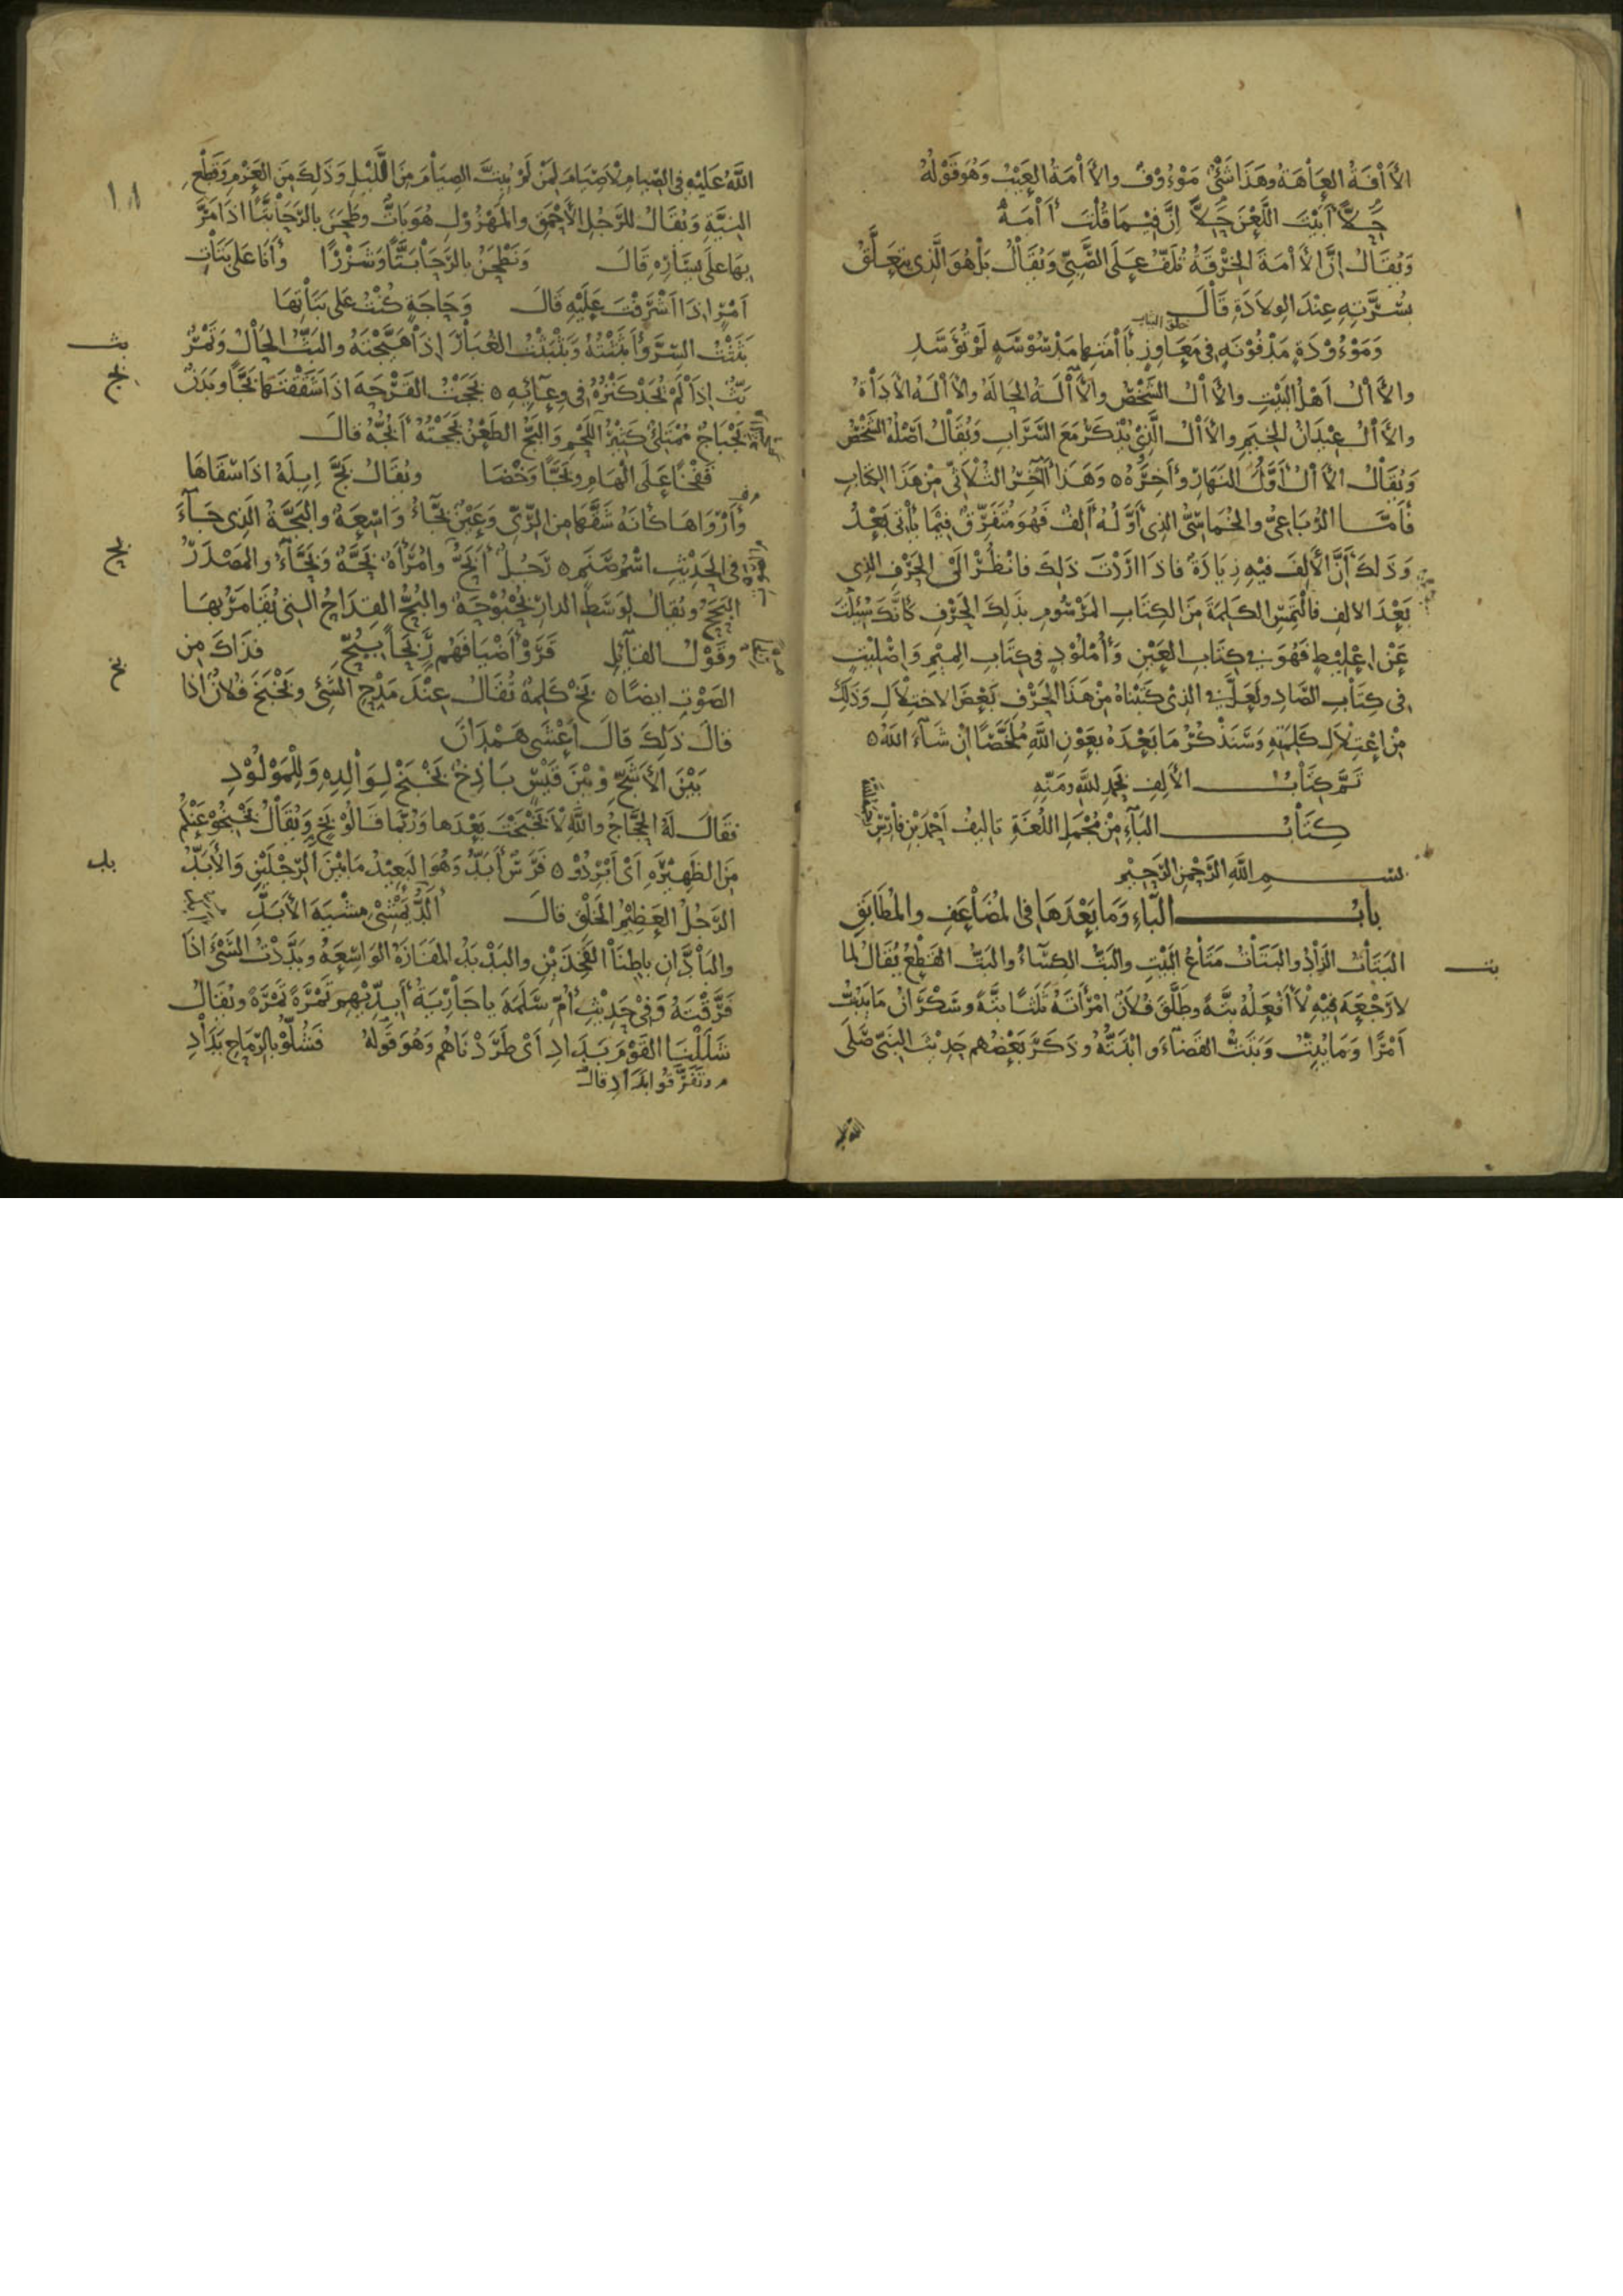 الآفَةُ العَاهَةُ وهَذَا شَئٌ مَوْءُوْفٌ والآمَةُ العَيْبُ وَهُوَ قَوْلُهُ
حَلاًّ أَبَيْتَ اللَّعْنَ حَلاًّ إنَّ فِيْمَا قُلْتَ آمَهْ
وَيُقَالُ إنَّ الآمَةَ الخِرْقَةُ تُلَفُّ عَلَى الصَّبِيِّ وَيُقَالُ بَلْ هُوَ الَّذِي يَتَعَلَّقُ
بِسُرَّتِهِ عِنْدَ الوِلادَةِ قَالَ
وَمَوْءُوْدَةٍ مَدْفُوْنَةٍ فِي مَعَاوِزٍ بِآمَتِهَا مَدْسُوْسَةٍ لَمْ تُوَسَّدِ
والآلُ أَهْلُ البَيْتِ والآلُ الشَّخْصُ والآلَةُ الحَالَةُ والآلَةُ الأدَاةُ
والآلُ عِيْدَانُ الخِيَمِ والآلُ الَّذِي يُذْكَرُ مَعَ السَّرَابِ وَيُقَالُ أَصْلُهُ الشَّخْصُ
وَيُقَالُ الآلُ أَوَّلُ النَّهَارِ وَآخِرُهُ ٥ وَهَذَا آخِرُ الثُّلاَثِيِّ مِنْ هَذَا الكِتَابِ
فَأَمَّا الرُّبَاعِيُّ والخُمَاسِيُّ الذِي أَوَّلُهُ أَلِفٌ فَهُوَ مُتَفَرِّقٌ فِيْمَا يَأْتِي بَعْدُ
وَذَلِكَ أَنَّ الأَلِفَ فِيْهِ زِيَادَةٌ فَاذَا ارَدْتَ ذَلِكَ فَانْظُرْ الَى الحَرْفِ الذِي
بَعْدَ الالِفِ فَالْتَمِسِ الكَلِمَةَ مِنَ الكِتَابِ المَوْسُومِ بِذَلِكَ الحَرْفِ كَأَنَّكَ سُئِلْتَ
عَنْ إعْلِيْطٍ فَهُوَ فِي كِتَابِ العَيْنِ وَأُمْلُوْدٍ فِي كِتَابِ المِيْمِ وَإصْلِيْتٍ
فِي كِتَابِ الصَّادِ ولَعَلَّ فِي الذِي كَتَبْنَاهُ مِنْ هَذَا الحَرْفِ بَعْضَ الاخْتِلاَلِ وَذَلِكَ
مِنْ إعْتِلاَلِ كَلِمَتِهِ وَسَنَذْكُرُ مَا بَعْدَهُ بِعَوْنِ اللَّهِ مُلَخَّصًا انْ شَآءَ اللَّهُ ٥
تَمَّ كِتَابُ الأَلِفِ بِحَمْدِ اللَّهِ ومَنِّهِ
كِتَابُ البَآءِ مِنْ مُجْمَلِ اللُّغَةِ تَالِيْفُ أَحْمَدَ بْنِ فَارِسٍ
بِسْمِ اللَّهِ الرَّحْمَنِ الرَّحِيْمِ
بابُ البَاءِ وَمَا بَعْدَهَا فِي المُضَاعَفِ والمُطَابَقِ
البَتَاتُ الزَادُ والبَتَاتُ مَتَاعُ البَيْتِ والبَتُّ الكِسَاءُ والبَتُّ القَطْعُ يُقَالُ لِمَا
بت
لا رَجْعَةَ فِيْهِ لاَ أَفْعَلُهُ بَتَّةً وطَلَّقَ فُلاَنٌ امْرَأَتَهُ ثَلَثًا بَتَّةً وسَكْرَانُ مَا يَبُتُّ
أَمْرًا وَمَا يُبِتُّ وَبَتَتُّ القَضَاءَ وابْتَتُّهُ وذَكَرَ بَعْضُهُم حَدِيْثَ النَبِيِّ صَلَّى
اللَّهُ عَلَيْهِ فِي الصِّيَامِ لاَ صِيَامَ لِمَنْ لَمْ يُبِتَّ الصِيَامَ مِنَ اللَّيْلِ وَذَلِكَ مِنَ العَزْمِ وَقَطْعِ
١١
النِيَّةِ وَيُقَالُ لِلرَّجُلِ الأَحْمَقِ والمَهْزُوْلِ هُوَ بَاتٌّ وطَحَنَ بِالرَّحَا بَتًّا اذَا مَرَّ
بِهَا عَلَى يَسَارِهِ قَالَ وَنَطْحَنُ بِالرَّحَا بَتًّا وَشَزْرًا وَأَنَا عَلَى بَتَاتِ
أَمْرٍ اذَا أَشْرَفْتَ عَلَيْهِ قَالَ وَحَاجَةٍ كُنْتُ عَلَى بَتَاتِهَا
بَثَثْتُ السِرَّ وأَبْثَثْتُهُ وَبَثْبَثْتُ الغُبَارَ إذَا هَيَّجْتَهُ والبَثُّ الحَالُ وتَمْرٌ
بث
بَثٌّ إذَا لَمْ يُجَدْ كَنْزُهُ فِي وِعَائِهِ ٥ بَجَجْتُ القَرْحَةَ اذَا شَقَقْتَهَا بَجًّا وبَدَنٌ
بج
بَجْبَاجٌ مُمْتَلِئٌ كَثِيْرُ اللَّحْمِ وَالبَجُّ الطَعْنُ بَجَجْتُهُ أَبُجُّهُ قَالَ
قَفْخًا عَلَى الْهَامِ وبَجًّا وَخْضَا ويُقَالُ بَجَّ إبِلَهُ اذَا سَقَاهَا
وأَرْوَاهَا كَأَنَّهُ شَقَّهَا مِنَ الرِّيِّ وَعَيْنٌ بَجَّاءُ وَاسِعَةٌ والبَجَّةُ الَّذِي جَآءَ
فِي الحَدِيْثِ اسْمُ صَنَمٍ ٥ رَجُلٌ أَبَحُّ وامْرَأَةٌ بَحَّةٌ وَبَحَّآءُ والمَصْدَرُ
بح
البَحَحُ ويُقَالُ لِوَسَطِ الدَارِ بُحْبُوْحَةٌ والبُحُّ القِدَاحُ التِي يُقَامَرُ بِهَا
وقَوْلُ القَائِلِ قَرَوْا أَضْيَافَهُم رَبَحًا بِبُحٍّ فَذَاكَ مِن
الصَوْتِ ايضًا ٥ بَخْ كَلِمَةٌ تُقَالُ عِنْدَ مَدْحِ الشَّئِ وبَخْبَخَ فُلاَنٌ اذَا
بخ
قَالَ ذَلِكَ قَالَ أَعْشَى هَمْدَانَ
بَيْنَ الأَشَجِّ وَبَيْنَ قَيْسٍ بَاذِخٌ بَخْبَخْ لِوَالِدِهِ وَلِلْمَوْلُوْدِ
فَقَالَ لَهُ الحَجَّاجُ واللَّهِ لاَ بَخْبَخْتَ بَعْدَهَا وَرُبَّمَا قَالُوْ بَخٍ وَيُقَالُ بَخْبِخُوْ عَنْكُمْ
مِنَ الظَهِيْرَةِ أَىْ أَبْرِدُوْ ٥ فَرَسٌ أَبَدُّ وَهُوَ البَعِيْدُ مَا بَيْنَ الرِّجْلَيْنِ وَالأَبَدُّ
بد
الرَّجُلُ العَظِيْمُ الخَلْقِ قَالَ أَلَدُّ يَمْشِي مِشْيَةَ الأَبَدِّ
والبَادَّانِ بَاطِنَا الفَخِذَيْنِ والبَدْبَدُ المَفَازَةُ الوَاسِعَةُ وبَدَّدْتُ الشَّئَ اذَا
فَرَّقْتَهُ وَفِي حَدِيْثِ أُمِّ سَلَمَةَ يا جَارِيَةُ أَبِدِّيْهِم تَمْرَةً تَمْرَةً ويُقَالُ
شَلَلْنَا القَوْمَ بَدَادِ أَىْ طَرَدْنَاهُم وَهُوَ قَوْلُهُ فَشُلُّوْ بِالرِّمَاحِ بَدَادِ
وتَفَرَّقُوا بَدَادِ قَالَ